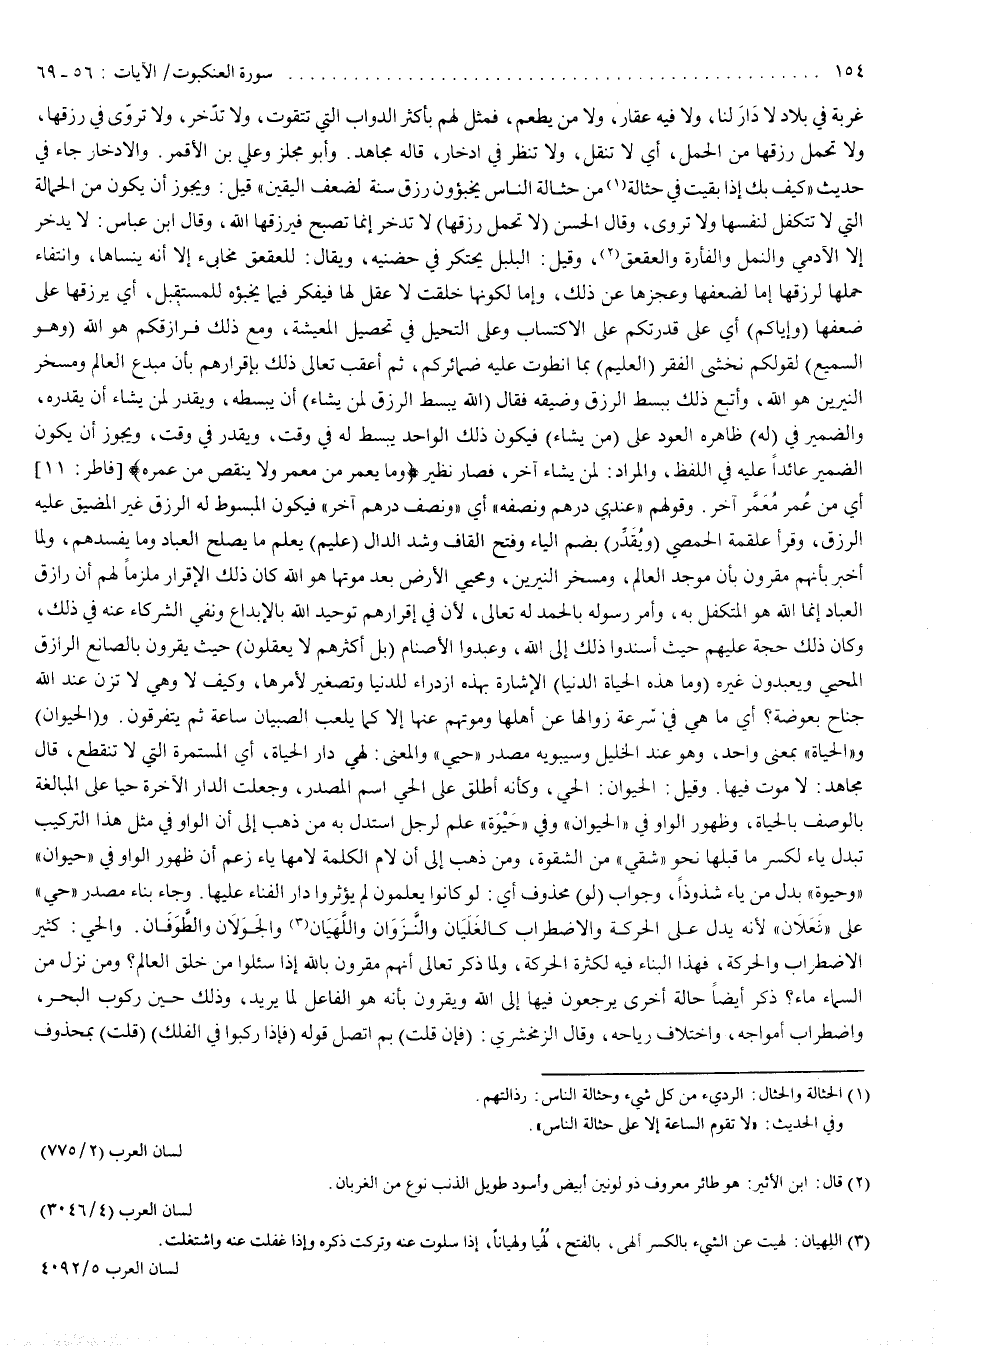 ١٥٤ ............................................... سورة العنكبوت/ الآيات : ٥٦ ـ ٦٩
غربة في بلاد لا دَارَ لنا، ولا فيه عقار، ولا من يطعم، فمثل لهم بأكثر الدواب التي تتقوت، ولا تدّخر، ولا تروّى في رزقها،
ولا تحمل رزقها من الحمل، أي لا تنقل، ولا تنظر في ادخار، قاله مجاهد. وأبو مجلز وعلي بن الأقمر. والادخار جاء في
حديث «كيف بك إذا بقيت في حثالة(١) من حثـالة النـاس يخبؤون رزق سنة لضعف اليقين» قيل: ويجوز أن يكون من الحمالة
التي لا تتكفل لنفسها ولا تروى، وقال الحسن (لا تحمل رزقها) لا تدخر إنما تصبح فيرزقها الله، وقال ابن عباس: لا يدخر
إلا الآدمي والنمل والفأرة والعقعق(٢)، وقيل: البلبل يحتكر في حضنيه، ويقال: للعقعق مخابىء إلا أنه ينساها، وانتفاء
حملها لرزقها إما لضعفها وعجزها عن ذلك، وإما لكونها خلقت لا عقل لها فيفكر فيما يخبؤه للمستقبل، أي يرزقها على
ضعفها (وإياكم) أي على قدرتكم على الاكتساب وعلى التحيل في تحصيل المعيشة، ومع ذلك فـرازقكم هو الله (وهـو
السميع) لقولكم نخشى الفقر (العليم) بما انطوت عليه ضمائركم، ثم أعقب تعالى ذلك بإقرارهم بأن مبدع العالم ومسخر
النيرين هو الله، وأتبع ذلك ببسط الرزق وضيقه فقال (الله يبسط الرزق لمن يشاء) أن يبسطه، ويقدر لمن يشاء أن يقدره،
والضمير في (له) ظاهره العود على (من يشاء) فيكون ذلك الواحد يبسط له في وقت، ويقدر في وقت، ويجوز أن يكون
الضمير عائداً عليه في اللفظ، والمراد: لمن يشاء آخر، فصار نظير ﴿وما يعمر من معمر ولا ينقص من عمره﴾ [فاطر: ١١]
أي من عُمر مُعَمَّر آخر. وقولهم «عندي درهم ونصفه» أي «ونصف درهم آخر» فيكون المبسوط له الرزق غير المضيق عليه
الرزق، وقرأ علقمة الحمصي (ويُقَدِّر) بضم الياء وفتح القاف وشد الدال (عليم) يعلم ما يصلح العباد وما يفسدهم، ولما
أخبر بأنهم مقرون بأن موجد العالم، ومسخر النيرين، ومحيي الأرض بعد موتها هو الله كان ذلك الإقرار ملزماً لهم أن رازق
العباد إنما الله هو المتكفل به، وأمر رسوله بالحمد له تعالى، لأن في إقرارهم توحيد الله بالإبداع ونفي الشركاء عنه في ذلك،
وكان ذلك حجة عليهم حيث أسندوا ذلك إلى الله، وعبدوا الأصنام (بل أكثرهم لا يعقلون) حيث يقرون بالصانع الرازق
المحيي ويعبدون غيره (وما هذه الحياة الدنيا) الإشارة بهذه ازدراء للدنيا وتصغير لأمرها، وكيف لا وهي لا تزن عند الله
جناح بعوضة؟ أي ما هي في سّرعة زوالها عن أهلها وموتهم عنها إلا كما يلعب الصبيان ساعة ثم يتفرقون. و(الحيوان)
و«الحياة» بمعنى واحد، وهو عند الخليل وسيبويه مصدر «حيي» والمعنى: لهي دار الحياة، أي المستمرة التي لا تنقطع، قال
مجاهد: لا موت فيها. وقيل: الحيوان: الحي، وكأنه أطلق على الحي اسم المصدر، وجعلت الدار الآخرة حيا على المبالغة
بالوصف بالحياة، وظهور الواو في «الحيوان» وفي «حَيْوَة» علم لرجل استدل به من ذهب إلى أن الواو في مثل هذا التركيب
تبدل ياء لكسر ما قبلها نحو «شقي» من الشقوة، ومن ذهب إلى أن لام الكلمة لامها ياء زعم أن ظهور الواو في «حيوان»
«وحيوة» بدل من ياء شذوذاً، وجواب (لو) محذوف أي: لو كانوا يعلمون لم يؤثروا دار الفناء عليها. وجاء بناء مصدر «حي»
على «نَعَلَان» لأنه يدل على الحركة والاضطراب كـالغَلَيَان والنَّـزَوَان واللَّهَيَان(٣) والجَـوَلَان والطَّوَفَـان. والحي: كثير
الاضطراب والحركة، فهذا البناء فيه لكثرة الحركة، ولما ذكر تعالى أنهم مقرون بالله إذا سئلوا من خلق العالم؟ ومن نزل من
السماء ماء؟ ذكر أيضاً حالة أخرى يرجعون فيها إلى الله ويقرون بأنه هو الفاعل لما يريد، وذلك حـين ركوب البحـر،
واضطراب أمواجه، واختلاف رياحه، وقال الزمخشري: (فإن قلت) بم اتصل قوله (فإذا ركبوا في الفلك) (قلت) بمحذوف
(١) الحثالة والحثال: الرديء من كل شيء وحثالة الناس: رذالتهم.
وفي الحديث: «لا تقوم الساعة إلا على حثالة الناس».
لسان العرب (٧٧٥/٢)
(٢) قال: ابن الأثير: هو طائر معروف ذو لونين أبيض وأسود طويل الذنب نوع من الغربان.
لسان العرب (٣٠٤٦/٤)
(٣) اللهيان: لهيت عن الشيء بالكسر ألهى، بالفتح، لُهُيا ولهياناً، إذا سلوت عنه وتركت ذكره وإذا غفلت عنه واشتغلت.
لسان العرب ٤٠٩٢/٥